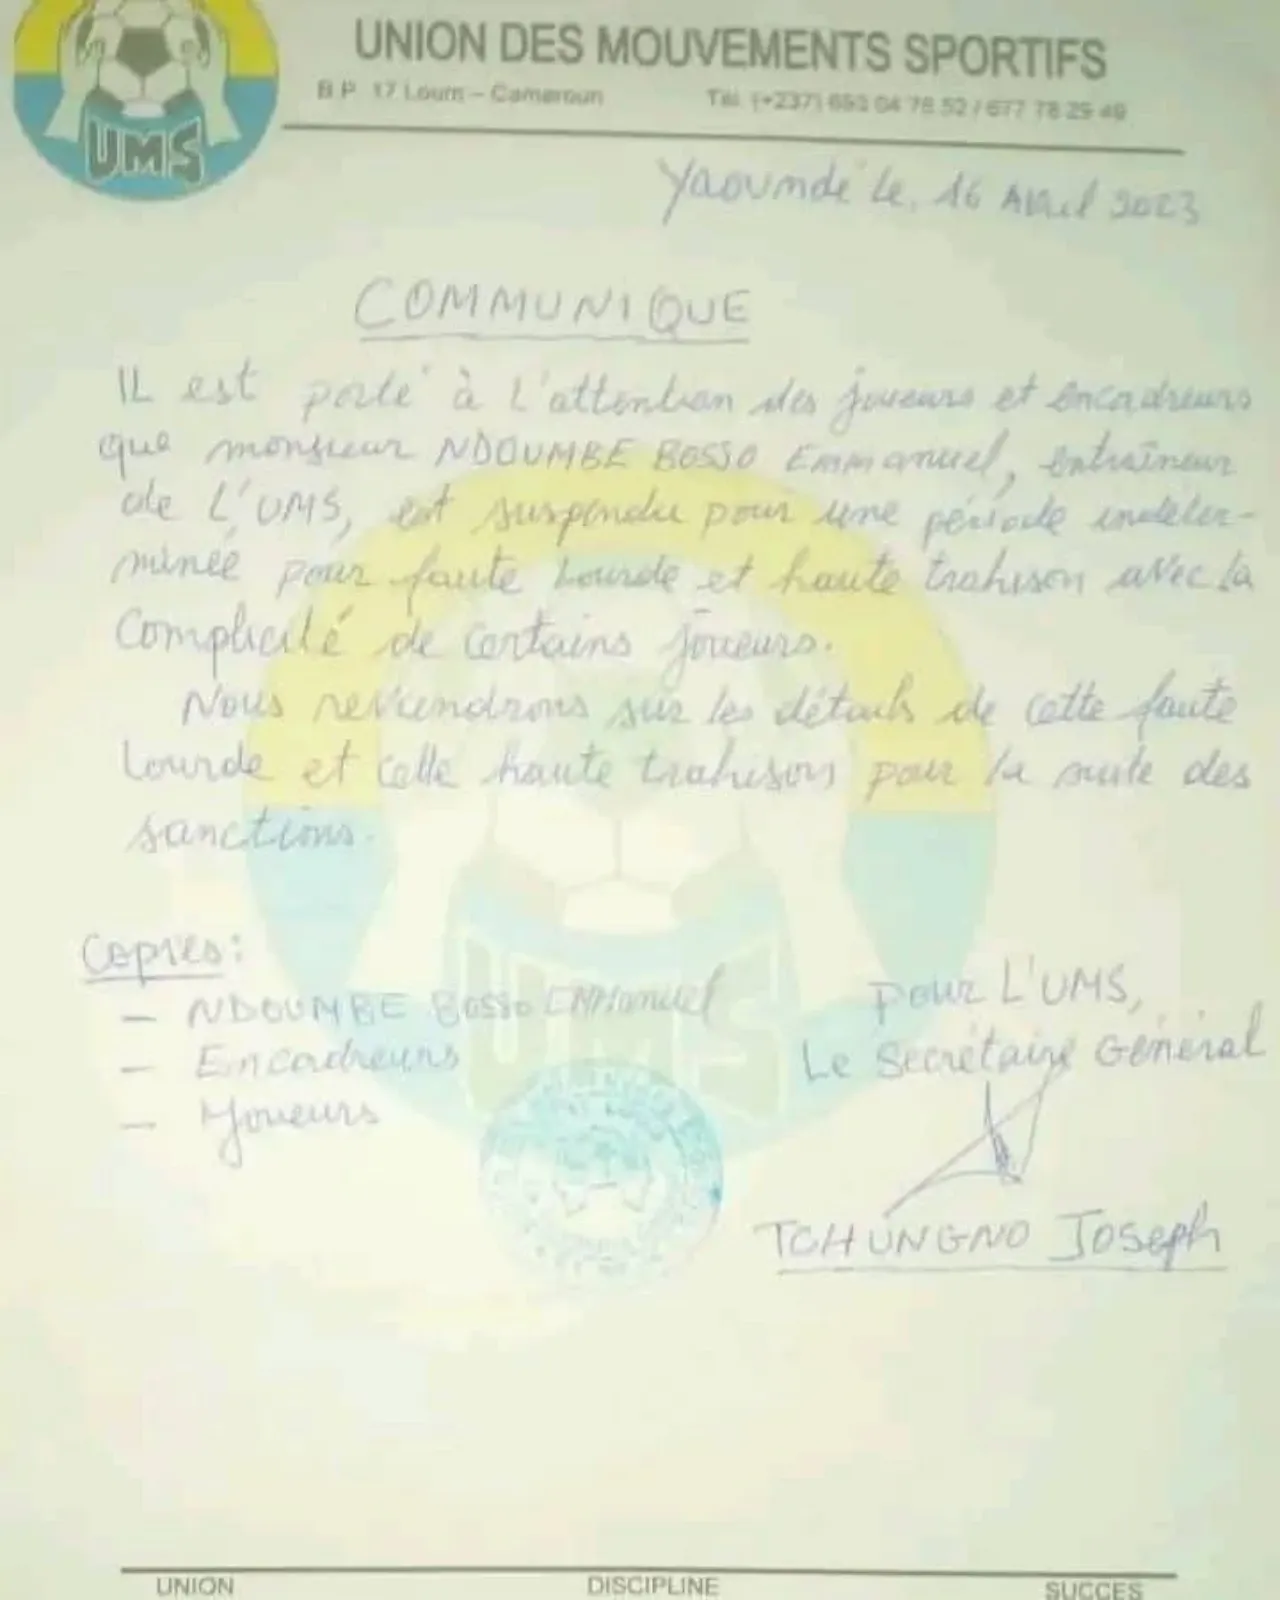 UMS
UNION DES MOUVEMENTS SPORTIFS
B.P. 17 Loum – Cameroun Tél. (+237) 693 04 78 52 / 677 78 29 49
Yaoundé Le, 16 Avril 2023
COMMUNIQUE
IL est porté à L'attention des joueurs et encadreurs
que monsieur NDOUMBE BOSSO Emmanuel, entraîneur
de L'UMS, est suspendu pour une période indéter-
minée pour faute Lourde et haute trahison avec la
Complicité de certains joueurs.
Nous reviendrons sur les détails de cette faute
Lourde et cette haute trahison pour la suite des
sanctions.
Copies:
– NDOUMBE BOSSO EMManuel
– Encadreurs
– Joueurs
pour L'UMS,
Le Secrétaire Général
TCHUNGNO Joseph
UMS
UNION DISCIPLINE SUCCES